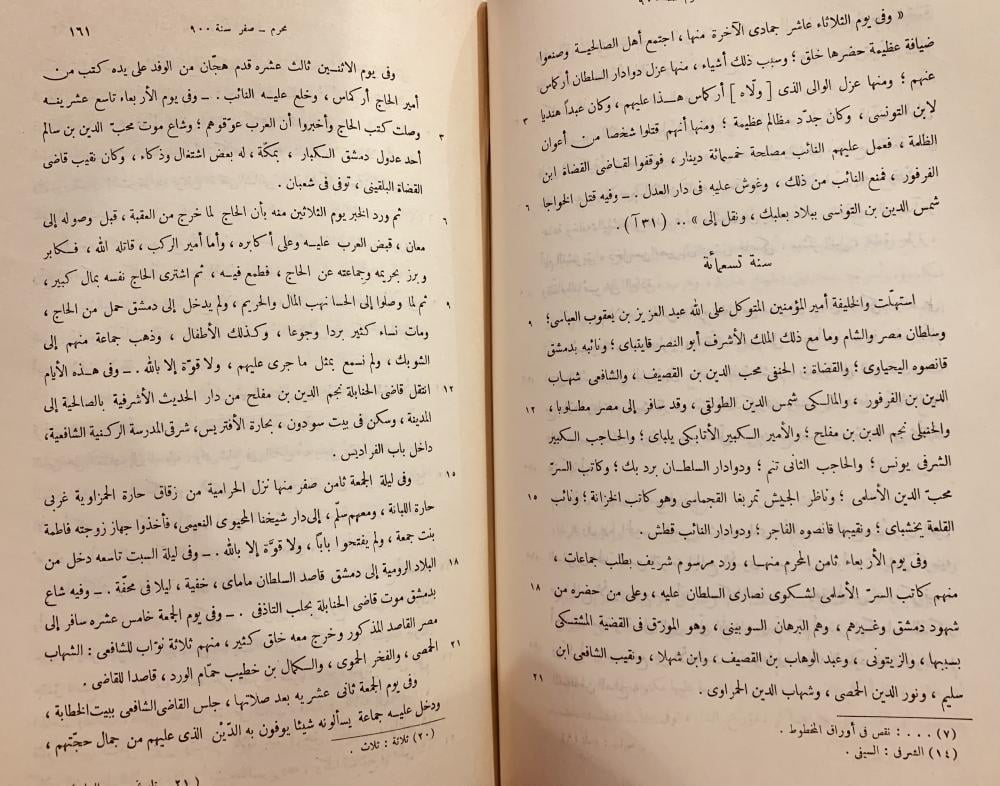 « وفى يوم الثلاثاء عاشر جمادى الآخرة منها ، اجتمع أهل الصالحية وصنعوا
ضيافة عظيمة حضرها خلق ؛ وسبب ذلك أشياء ، منها عزل دوادار السلطان أركماس
عنهم ؛ ومنها عزل الوالى الذى [ ولّاه ] أركماس هــذا عليهم ، وكان عبداً هنديا ٣
لابن التونسى ، وكان جدّد مظالم عظيمة ؛ ومنها أنهم قتلوا شخصا من أعوان
الظلمة ، فعمل عليهم النائب مصلحة خمسمائة دينار ، فوقفوا لقـاضى القضاة ابن
الفرفور ، فمنع النائب من ذلك ، وغوش عليه فى دار العدل . ــ وفيه قتل الخواجا ٦
شمس الدين بن التونسى ببلاد بعلبك ، ونقل إلى » .. ( ٣١ آ ) .
سنة تسعمائة
استهلّت والخليفة أمير المؤمنين المتوكل على الله عبد العزيز بن يعقوب العباسى؛ ٩
وسلطان مصر والشام وما مع ذلك الملك الأشرف أبو النصر قايتباى ؛ ونائبه بدمشق
قانصوه اليحياوى ؛ والقضاة : الحنفى محب الدين بن القصيف ، والشافعى شهاب
الدين بن الفرفور ، والمالكى شمس الدين الطولقى ، وقد سافر إلى مصر مطلوبا ، ١٢
والحنبلى نجم الدين بن مفلح ؛ والأمير الكبير الأتابكى يلباى ؛ والحاجب الكبير
الشرفى يونس ؛ والحاجب الثانى تنم ؛ ودوادار السلطـان برد بك ؛ وكاتب السرّ
محبّ الدين الأسلمى ؛ وناظر الجيش تمربغا القجماسى وهو كاتب الخزانة ؛ ونائب ١٥
القلعة يخشباى ؛ ونقيبها قانصوه الفاجر ؛ ودوادار النائب قطش .
وفى يوم الأربعاء ثامن المحرم منهـا ، ورد مرسوم شريف بطلب جماعات ،
منهم كاتب السرّ الأسلمى لشكوى نصارى السلطان عليه ، وعلى من حضره من ١٨
شهود دمشق وغـيرهم ، وهم البرهان السوبينى ، وهو المورّق فى القضية المشتكى
بسببها ، والزيتونى ، وعبد الوهاب بن القصيف ، وابن شهلا ، ونقيب الشافعى ابن
سليم ، ونور الدين الحمصى ، وشهاب الدين الحمراوى . ٢١
(٧) . . . : نقص فى أوراق المخطوط .
(١٤) الشرفى : السيفى .
محرم ــ صفر سنة ٩٠٠ ١٦١
وفى يوم الاثنــين ثالث عشره قدم هجّان من الوفد على يده كتب من
أمير الحاج أركماس ، وخلع عليـه النائب . ــ وفى يوم الأربعاء تاسع عشريـه
وصلت كتب الحاج وأخبروا أن العرب عوّقوهم ؛ وشاع موت محبّ الدين بن سالم ٣
أحد عدول دمشق الـكبار ، بمكّة ، له بعض اشتغال وذكاء ، وكان نقيب قاضى
القضاة البلقينى ، توفى فى شعبان .
ثم ورد الخبر يوم الثلاثين منه بأن الحاج لما خرج من العقبة ، قبل وصوله إلى ٦
معان ، قبض العرب عليـه وعلى أكابره ، وأما أمير الركب ، قاتله الله ، فـكابر
وبرز بحريمه وجماعته عن الحاج ، فطمع فيـه ، ثم اشترى الحاج نفسه بمال كبير ،
ثم لما وصلوا إلى الحسا نهب المال والحريم ، ولم يدخل إلى دمشق حمل من الحاج ، ٩
ومات نساء كثير بردا وجوعا ، وكـذلك الأطفال ، وذهب جماعة منهم إلى
الشوبك ، ولم نسمع بمثل ما جرى عليهم ، ولا قوّة إلا بالله . ــ وفى هــذه الأيام
انتقل قاضى الحنابلة نجم الدين بن مفلح من دار الحديث الأشرفية بالصالحية إلى ١٢
المدينة ، وسكن فى بيت سودون ، بحارة الأفتريس، شرقى المدرسة الركـنية الشافعية،
داخل باب الفراديس .
وفى ليلة الجمعة ثامن صفر منها نزل الحرامية من زقاق حارة الحمزاوية غربى ١٥
حارة اللبانة ، ومعهم سلّم ، إلى دار شيخنا المحيوى النعيمى، فأخذوا جهاز زوجته فاطمة
بنت جمعة ، ولم يفتحوا بابًا ، ولا قوّة إلا بالله . ــ وفى ليلة السبت تاسعه دخل من
البلاد الرومية إلى دمشق قاصد السلطان ماماى ، خفية ، ليلا فى محفّة . ــ وفيه شاع ١٨
بدمشق موت قاضى الحنابلة بحلب التاذفى . ــ وفى يوم الجمعة خامس عشره سافر إلى
مصر القاصد المذكور وخرج معه خلق كثير ، منهم ثلاثة نوّاب للشافعى : الشهاب
الحمصى ، والفخر الحموى ، والـكمال بن خطيب حمّام الورد ، قاصدا للقاضى . ٢١
وفى يوم الجمعة ثانى عشريه بعد صلاتها ، جلس القاضى الشافعى ببيت الخطابة ،
ودخل عليـه جماعة يسألونه شيئا يوفون به الدّيْن الذى عليهم من جمال حجّتهم ،
(٢٠) ثلاثة : ثلاث .